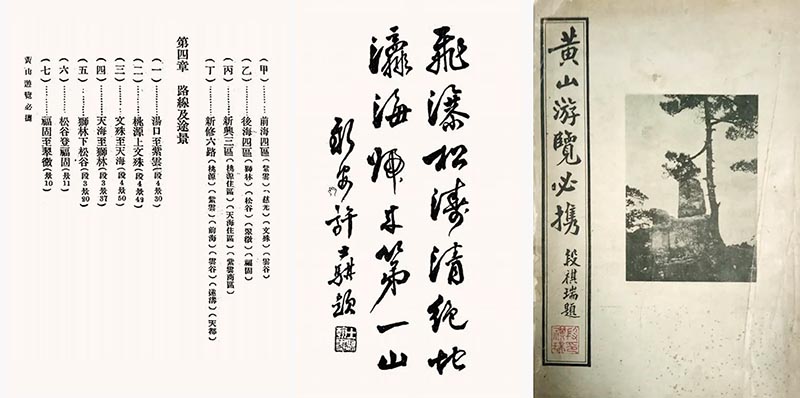 黄山游覽必携
段祺瑞題
飛瀑松濤清絕地
瀛海歸來第一山
新安許士騏題
(甲)………前海四區(紫雲)(慈光)(文殊)(雲谷)
(乙)………後海四區(獅林)(松谷)(翠微)(福固)
(丙)………新興三區(桃源住區)(天海住區)(紫雲商區)
(丁)………新修六路(桃源)(紫雲)(前海)(雲谷)(天都)
第四章 路線及途景
(一)………湯口至紫雲(段4景30)
(二)………桃源上文殊(段4景42)
(三)………文殊至天海(段4景50)
(四)………天海至獅林(段3景37)
(五)………獅林下松谷(段3景20)
(六)………松谷登福固(景11)
(七)………福固至翠微(景10)
黃山遊覽必攜